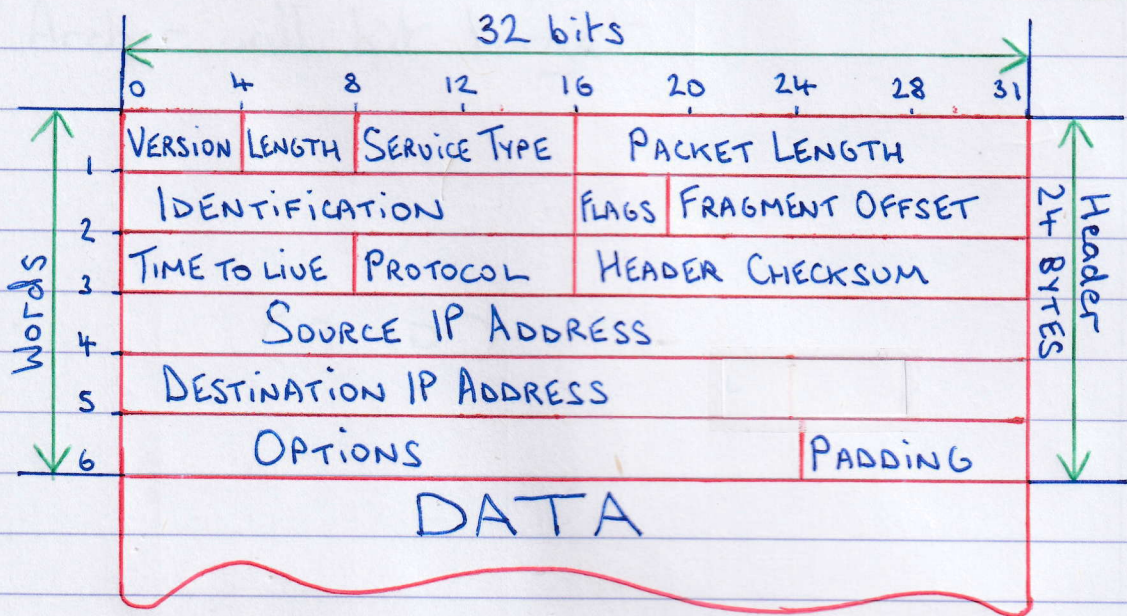 32 bits
0 4 8 12 16 20 24 28 31
VERSION LENGTH SERVICE TYPE PACKET LENGTH
1
IDENTIFICATION FLAGS FRAGMENT OFFSET
2
TIME TO LIVE PROTOCOL HEADER CHECKSUM
3
SOURCE IP ADDRESS
4
DESTINATION IP ADDRESS
5
OPTIONS PADDING
6
DATA
Words
Header
24 BYTES